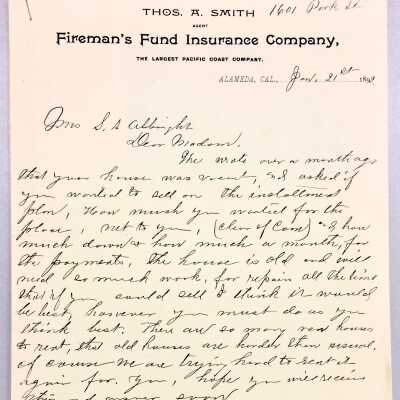 THOS. A. SMITH 1601 Park St
AGENT
Fireman's Fund Insurance Company,
THE LARGEST PACIFIC COAST COMPANY.
ALAMEDA, CAL., Jan. 21st 189
Mrs S. A Albright
Dear Madam.
We wrote over a month ago
that your house was vacant, & asked if
you wanted to sell on the installment
plan, How much you wanted for the
place, net to you, (clear of Com) & how
much down & how much a month, for
the payments. The house is old and will
need so much work, for repair all the time
that if you could sell I think it would
be best, however you must do as you
think best. There are so many new houses
to rent, that old houses are harder than usual.
of course we are trying hard to rent it
again for you, hope you will receive
this and answer soon